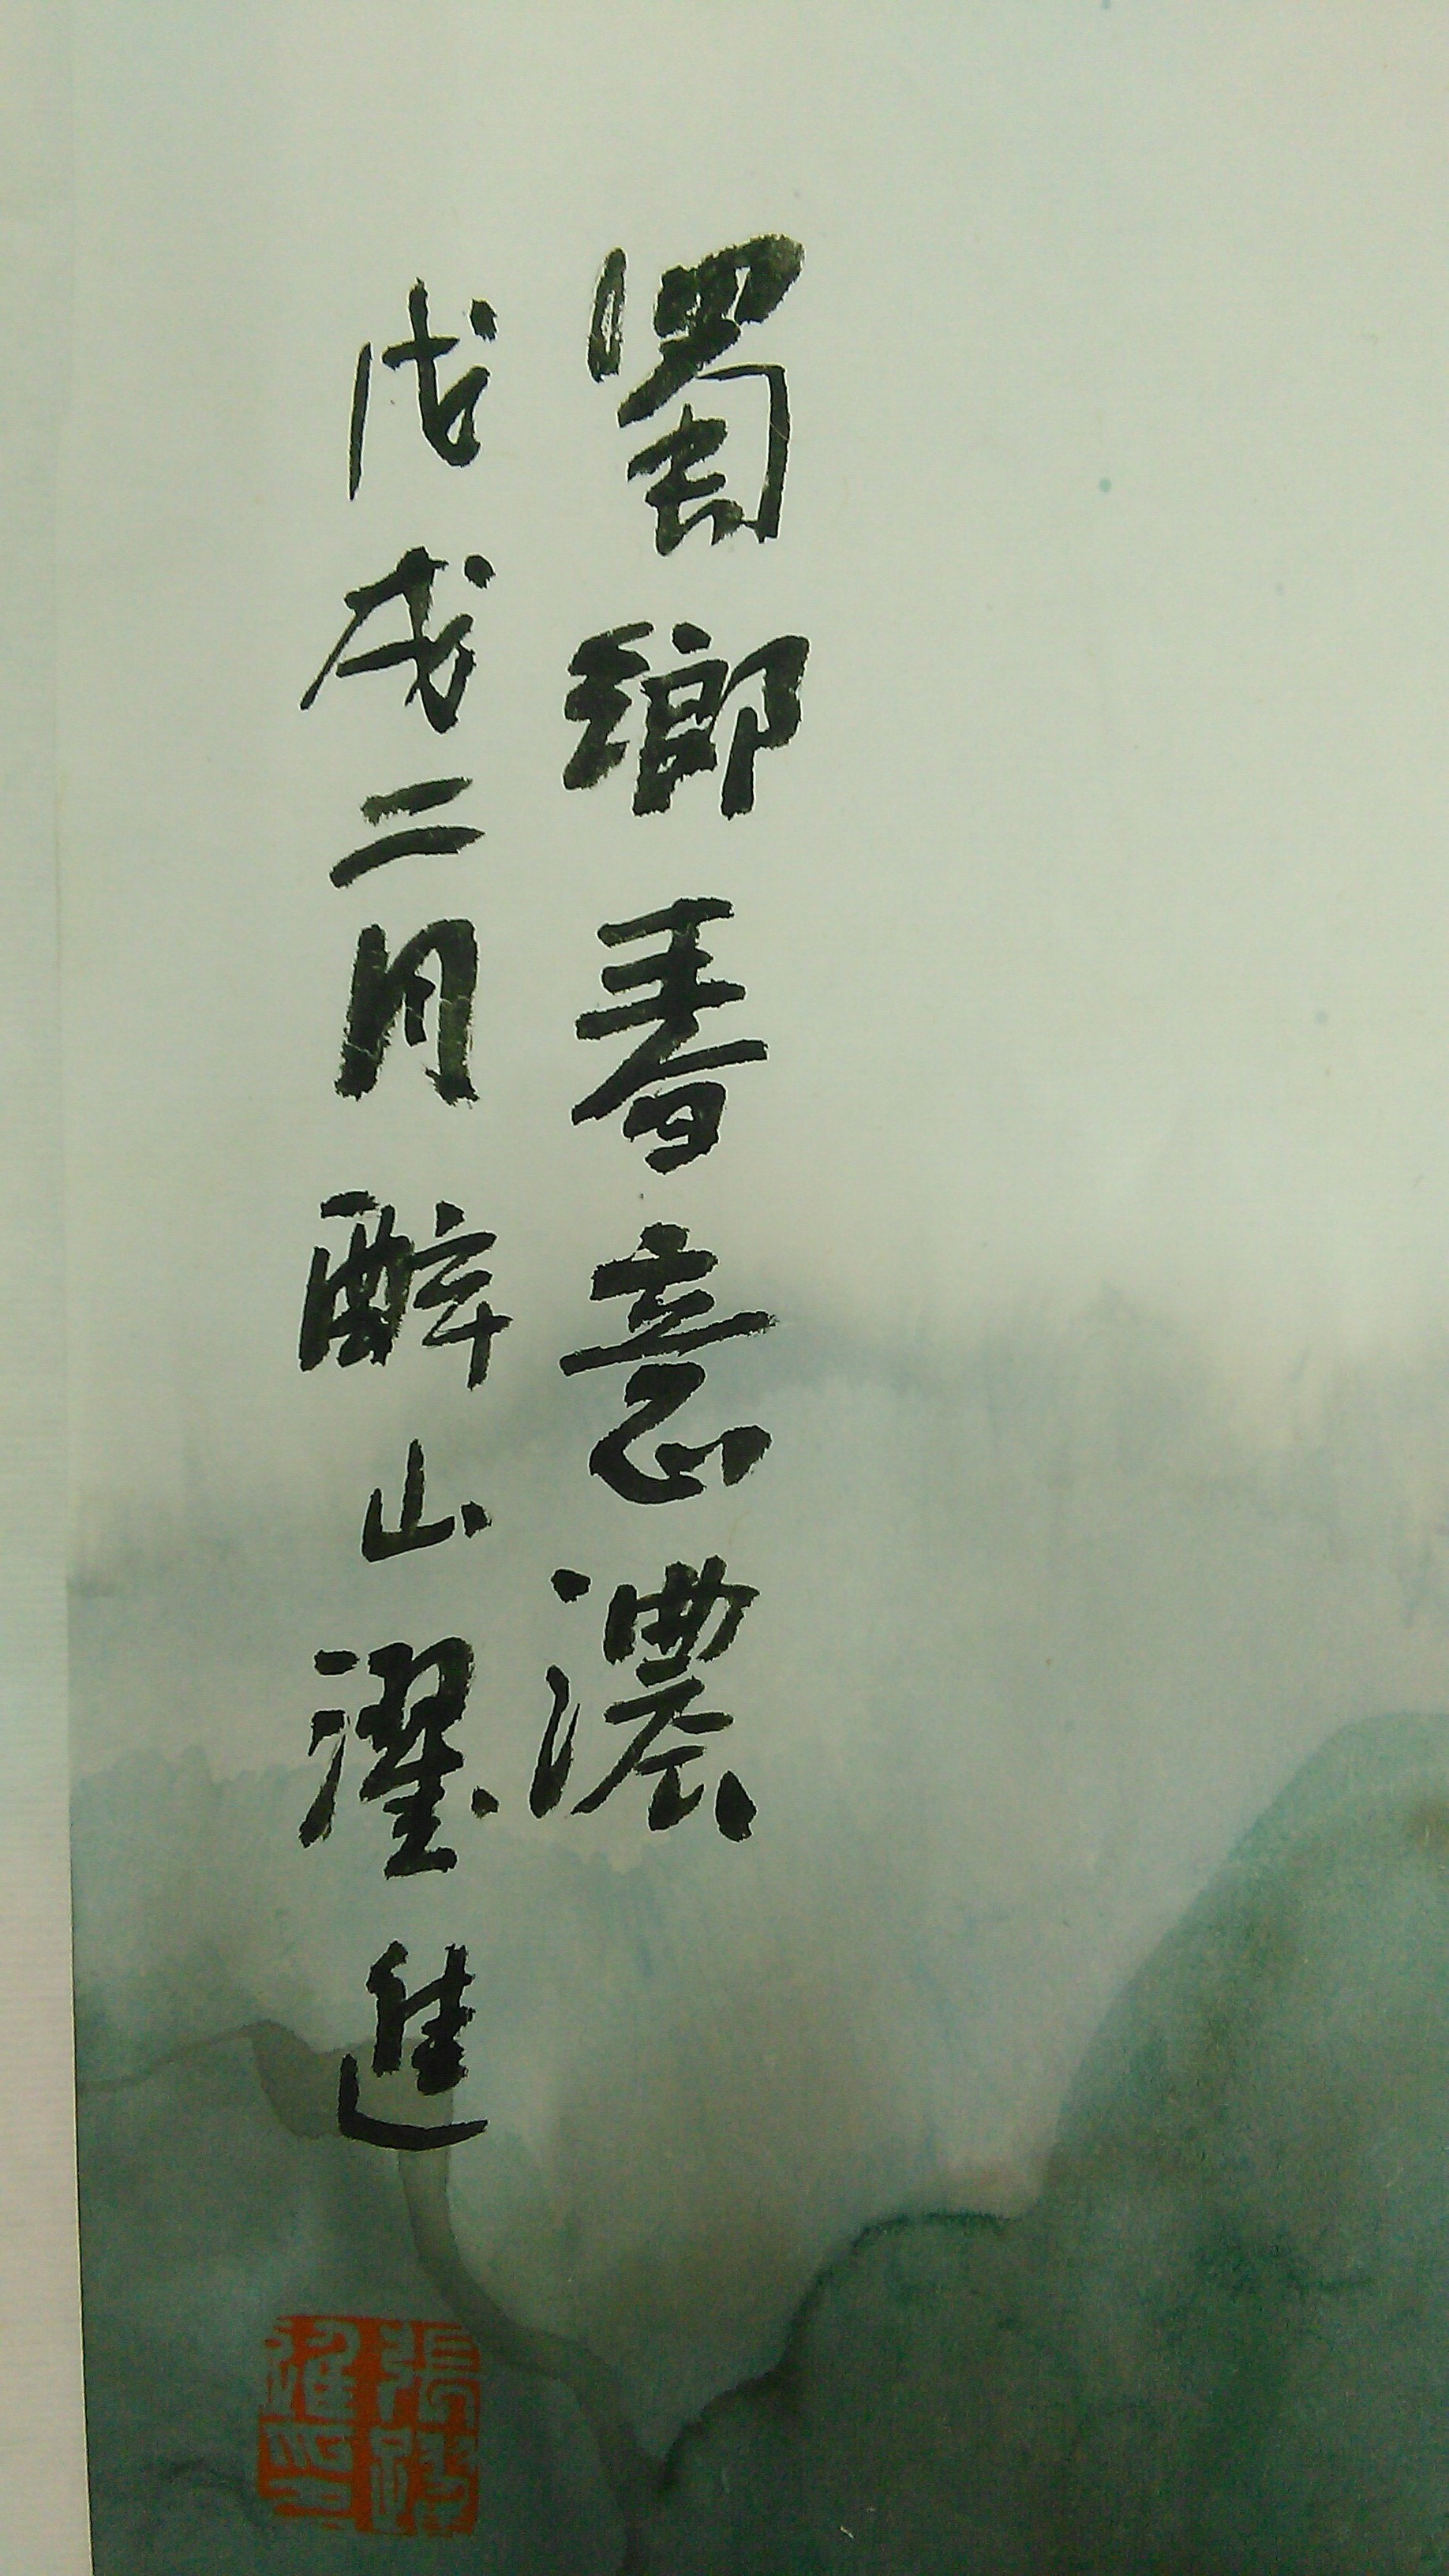 蜀鄉春意濃
戊戌二月醉山濯進